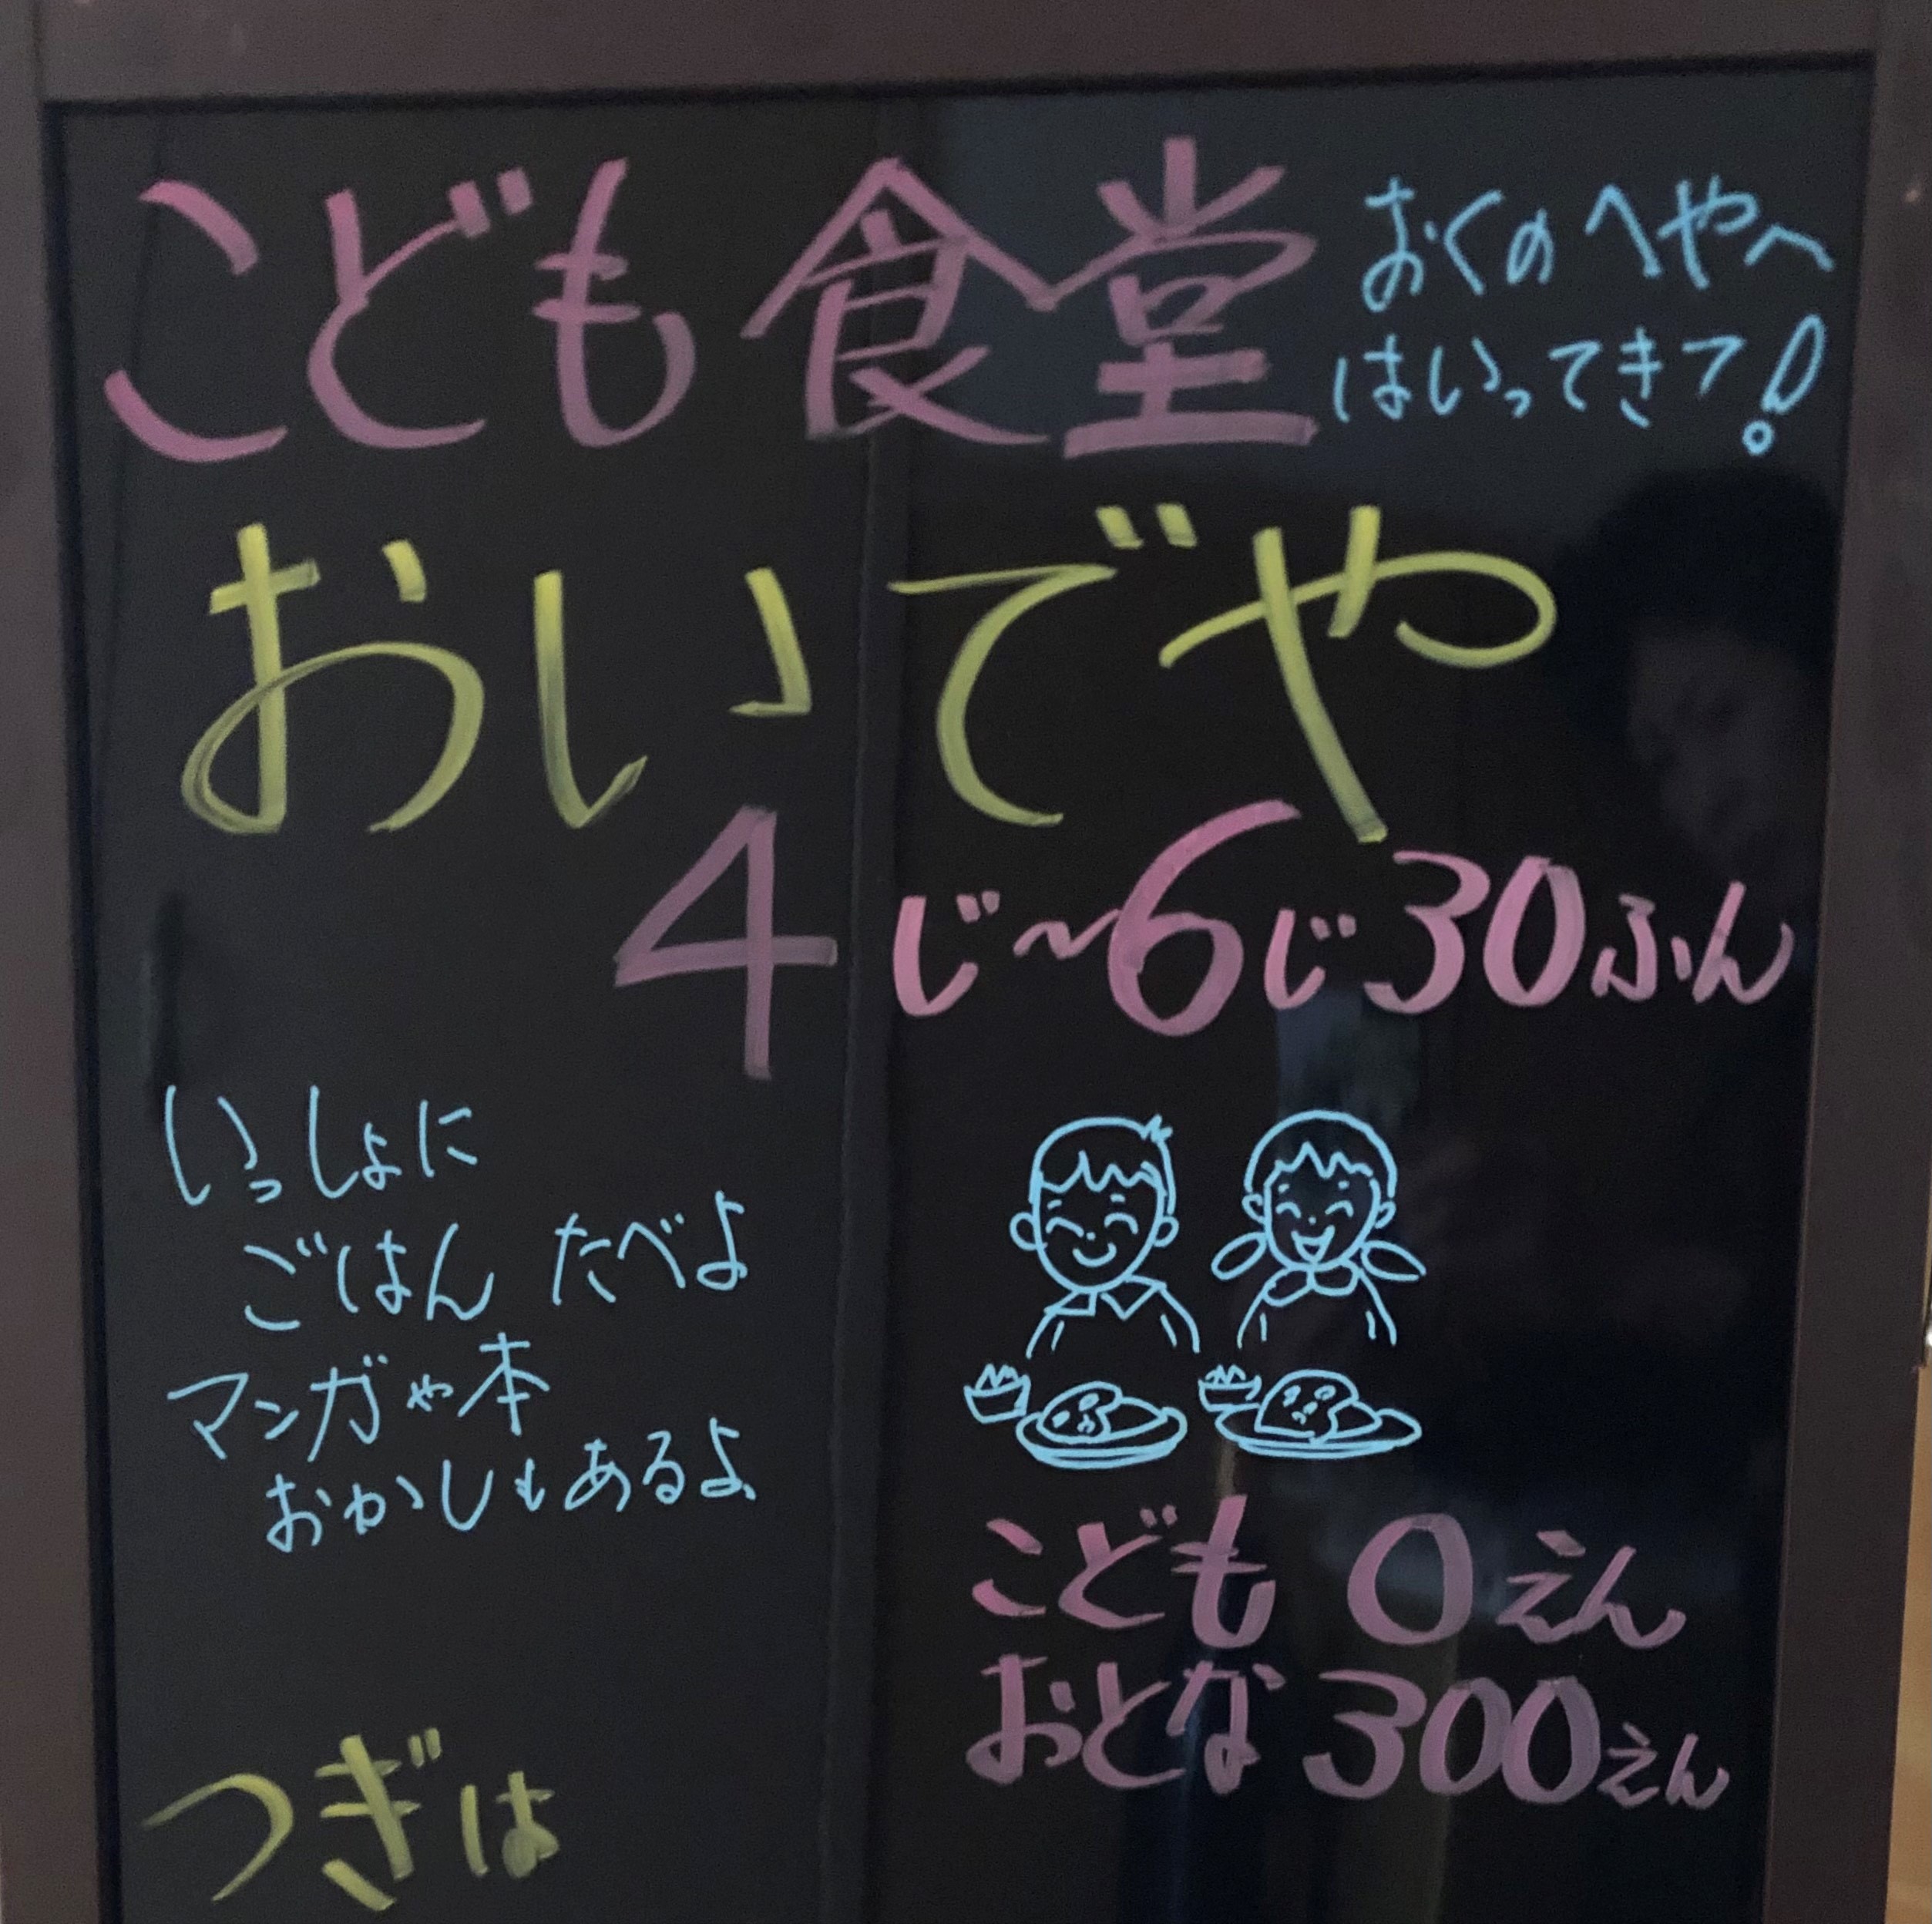 こども食堂
おくのへやへ
はいってきて!
おいでや
4じ~6じ30ふん
いっしょに
ごはん たべよ
マンガや本
おかしもあるよ
こども 0えん
おとな 300えん
つぎは